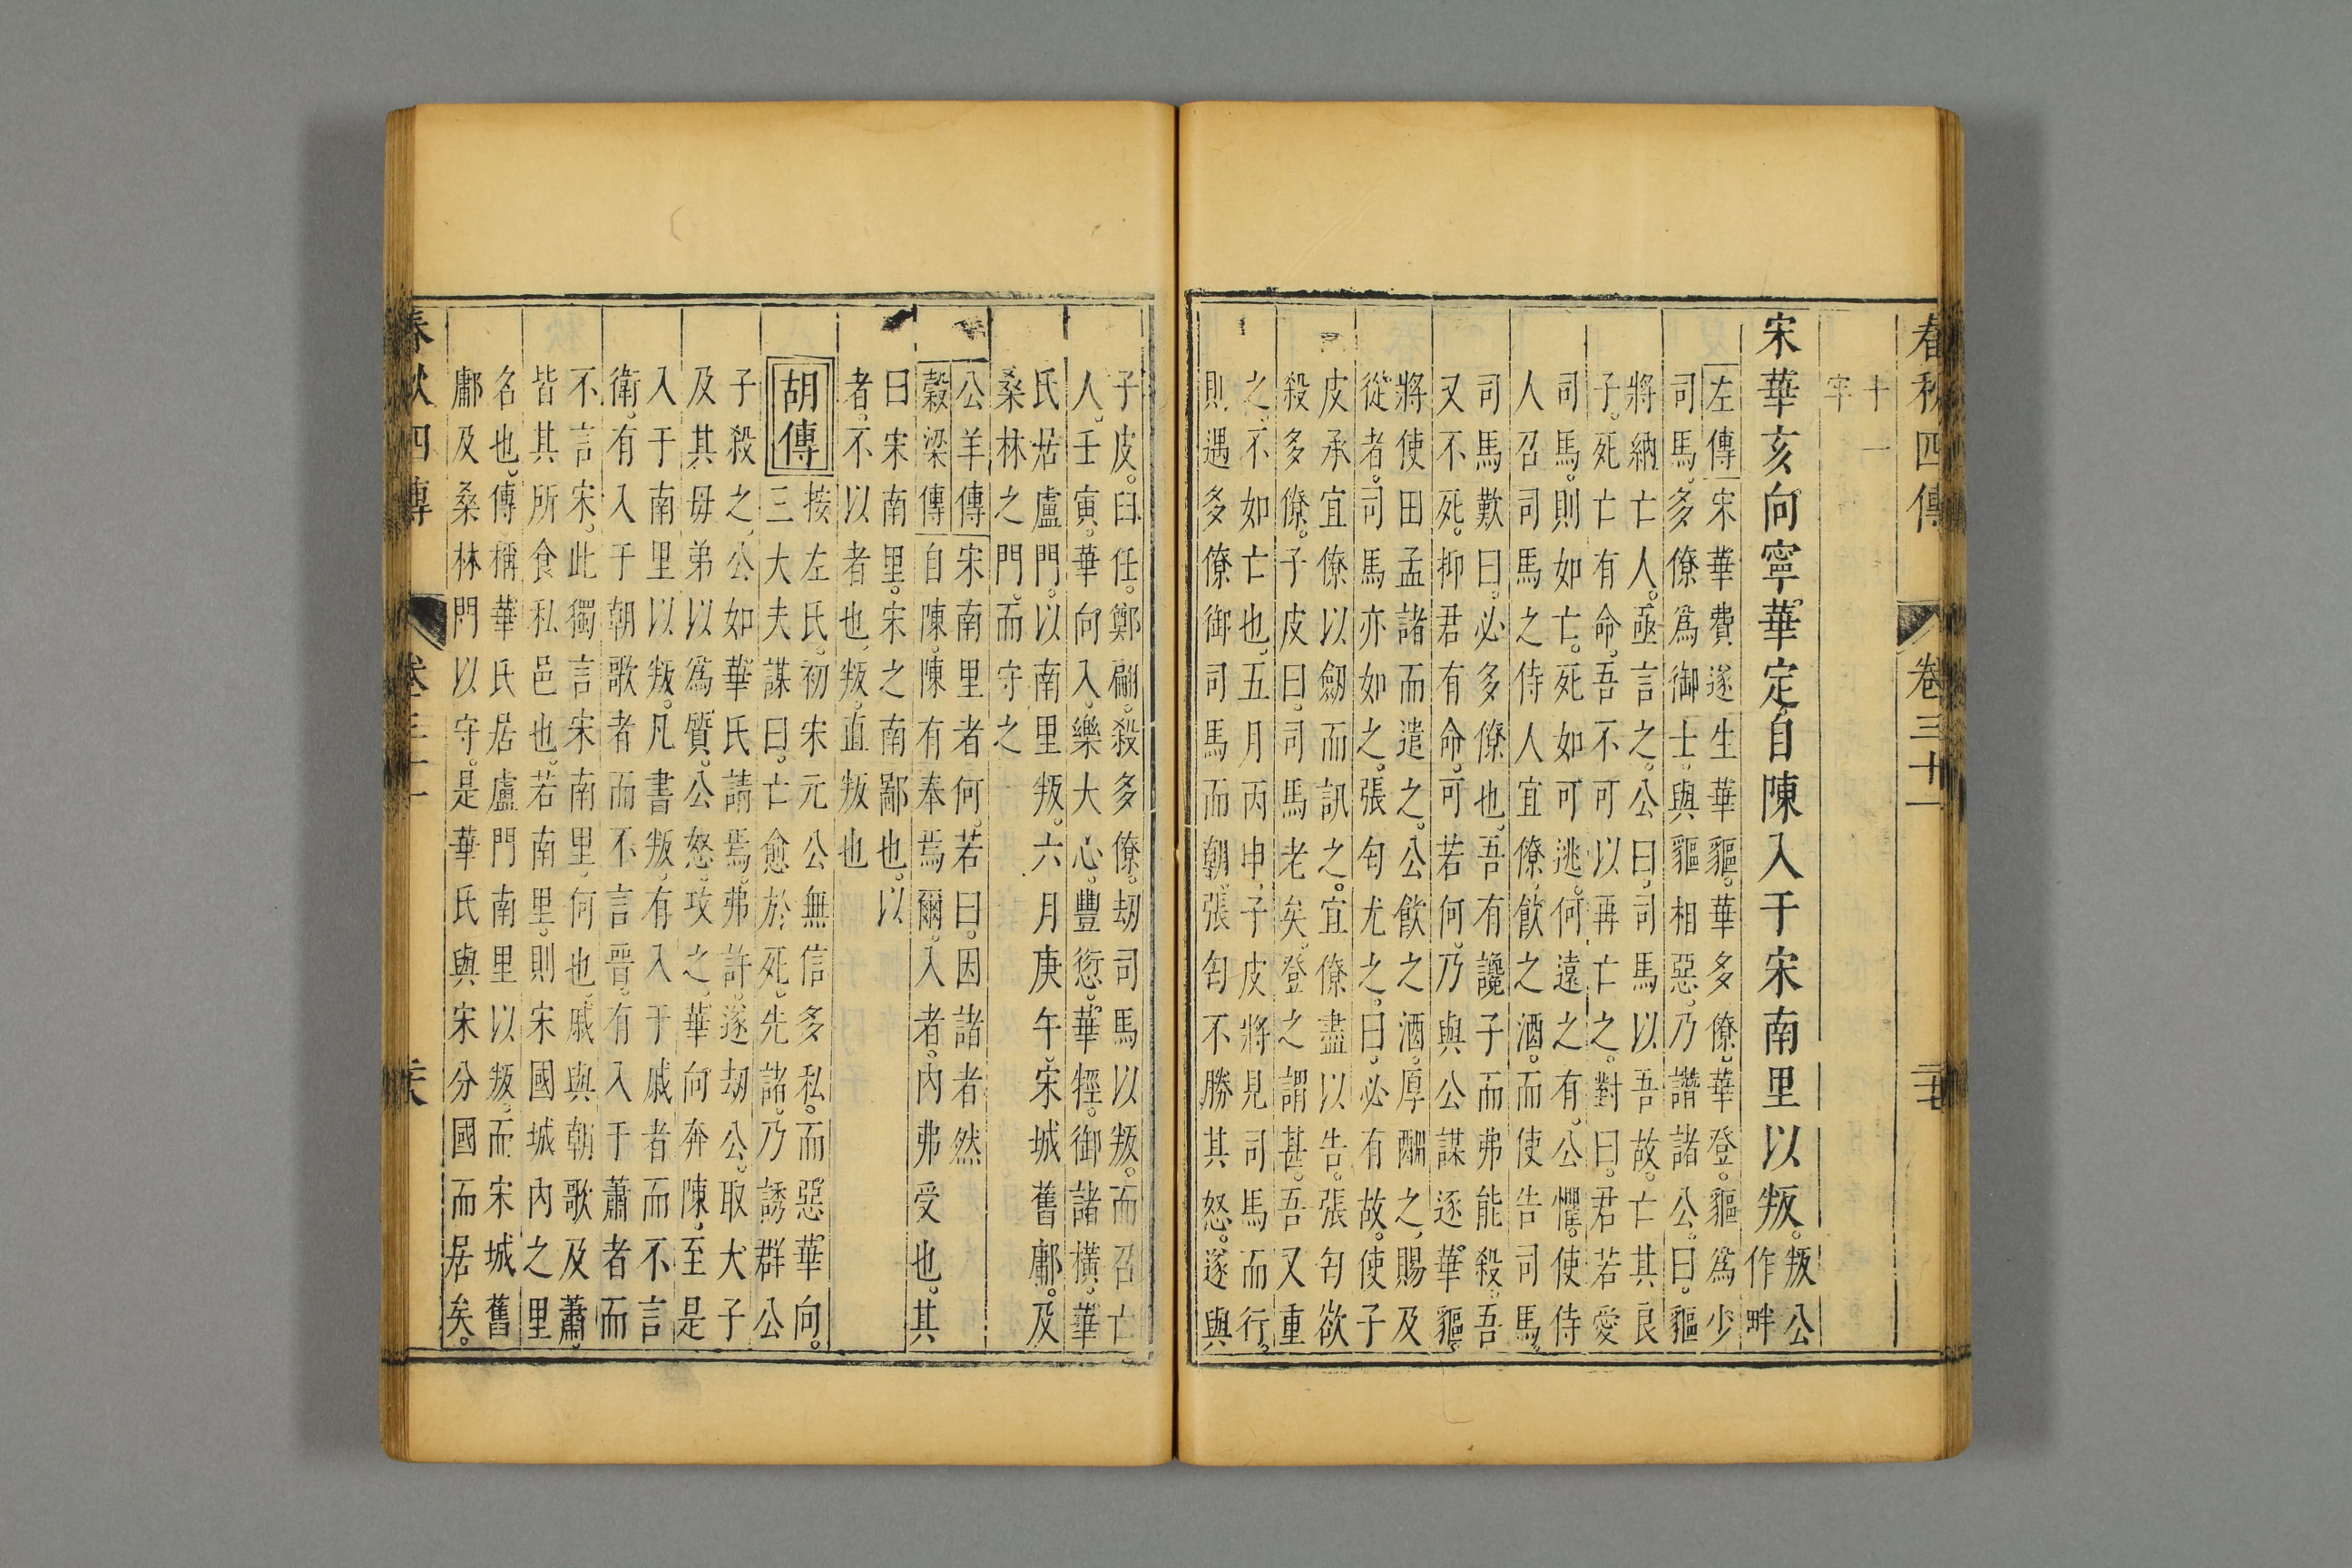 春秋四傳 卷三十一
十一
牢
宋華亥向寧華定自陳入于宋南里以叛。叛公
作畔
左傳宋華費遂生華貙。華多僚。華登。貙爲少
司馬。多僚爲御士。與貙相惡。乃譖諸公。曰。貙
將納亡人。亟言之。公曰。司馬以吾故。亡其良
子。死亡有命。吾不可以再亡之。對曰。君若愛
司馬。則如亡。死如可逃。何遠之有。公懼。使侍
人召司馬之侍人宜僚。飮之酒。而使告司馬。
司馬歎曰。必多僚也。吾有讒子而弗能殺。吾
又不死。抑君有命。可若何。乃與公謀逐華貙。
將使田孟諸而遣之。公飮之酒。厚酬之。賜及
從者。司馬亦如之。張匄尤之。曰。必有故。使子
皮承宜僚以劒而訊之。宜僚盡以告。張匄欲
殺多僚。子皮曰。司馬老矣。登之謂甚。吾又重
之。不如亡也。五月丙申。子皮將見司馬而行。
則遇多僚御司馬而朝。張匄不勝其怒。遂與
子皮。臼任。鄭翩。殺多僚。刼司馬以叛。而召亡
人。壬寅。華向入。樂大心。豐愆。華牼。御諸橫。華
氏居盧門。以南里叛。六月庚午。宋城舊鄘。及
桑林之門。而守之
公羊傳宋南里者何。若曰。因諸者然
穀梁傳自陳。陳有奉焉爾。入者。內弗受也。其
曰宋南里。宋之南鄙也。以
者。不以者也。叛。直叛也
胡傳按左氏。初宋元公無信多私。而惡華向。
三大夫謀曰。亡愈於死。先諸。乃誘群公
子殺之。公如華氏請焉。弗許。遂刼公。取大子
及其毋弟以爲質。公怒。攻之。華向奔陳。至是
入于南里以叛。凡書叛。有入于戚者而不言
衛。有入于朝歌者而不言晉。有入于蕭者而
不言宋。此獨言宋南里。何也。戚與朝歌及蕭。
皆其所食私邑也。若南里。則宋國城內之里
名也。傳稱華氏居盧門南里以叛。而宋城舊
鄘及桑林門以守。是華氏與宋分國而居矣。
春秋四傳 卷三十一